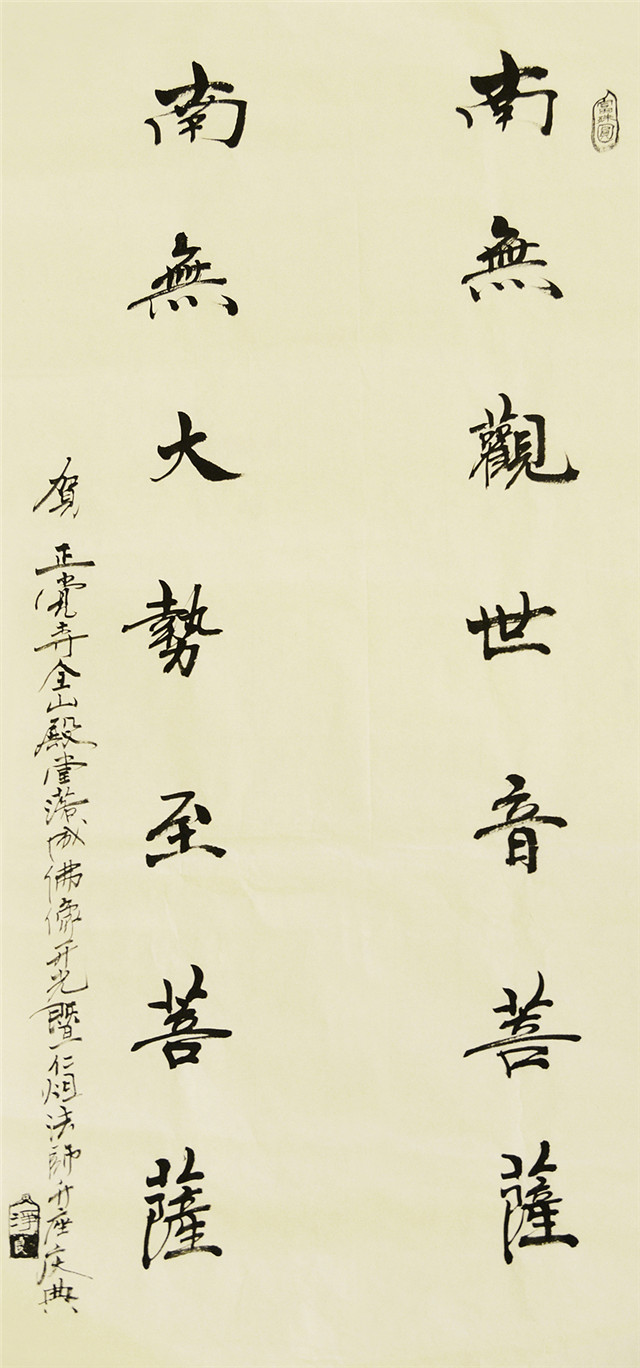 南無觀世音菩薩
南無大勢至菩薩
賀 正覺寺全山殿堂落成佛像开光暨仁烜法師升座庆典
淨良